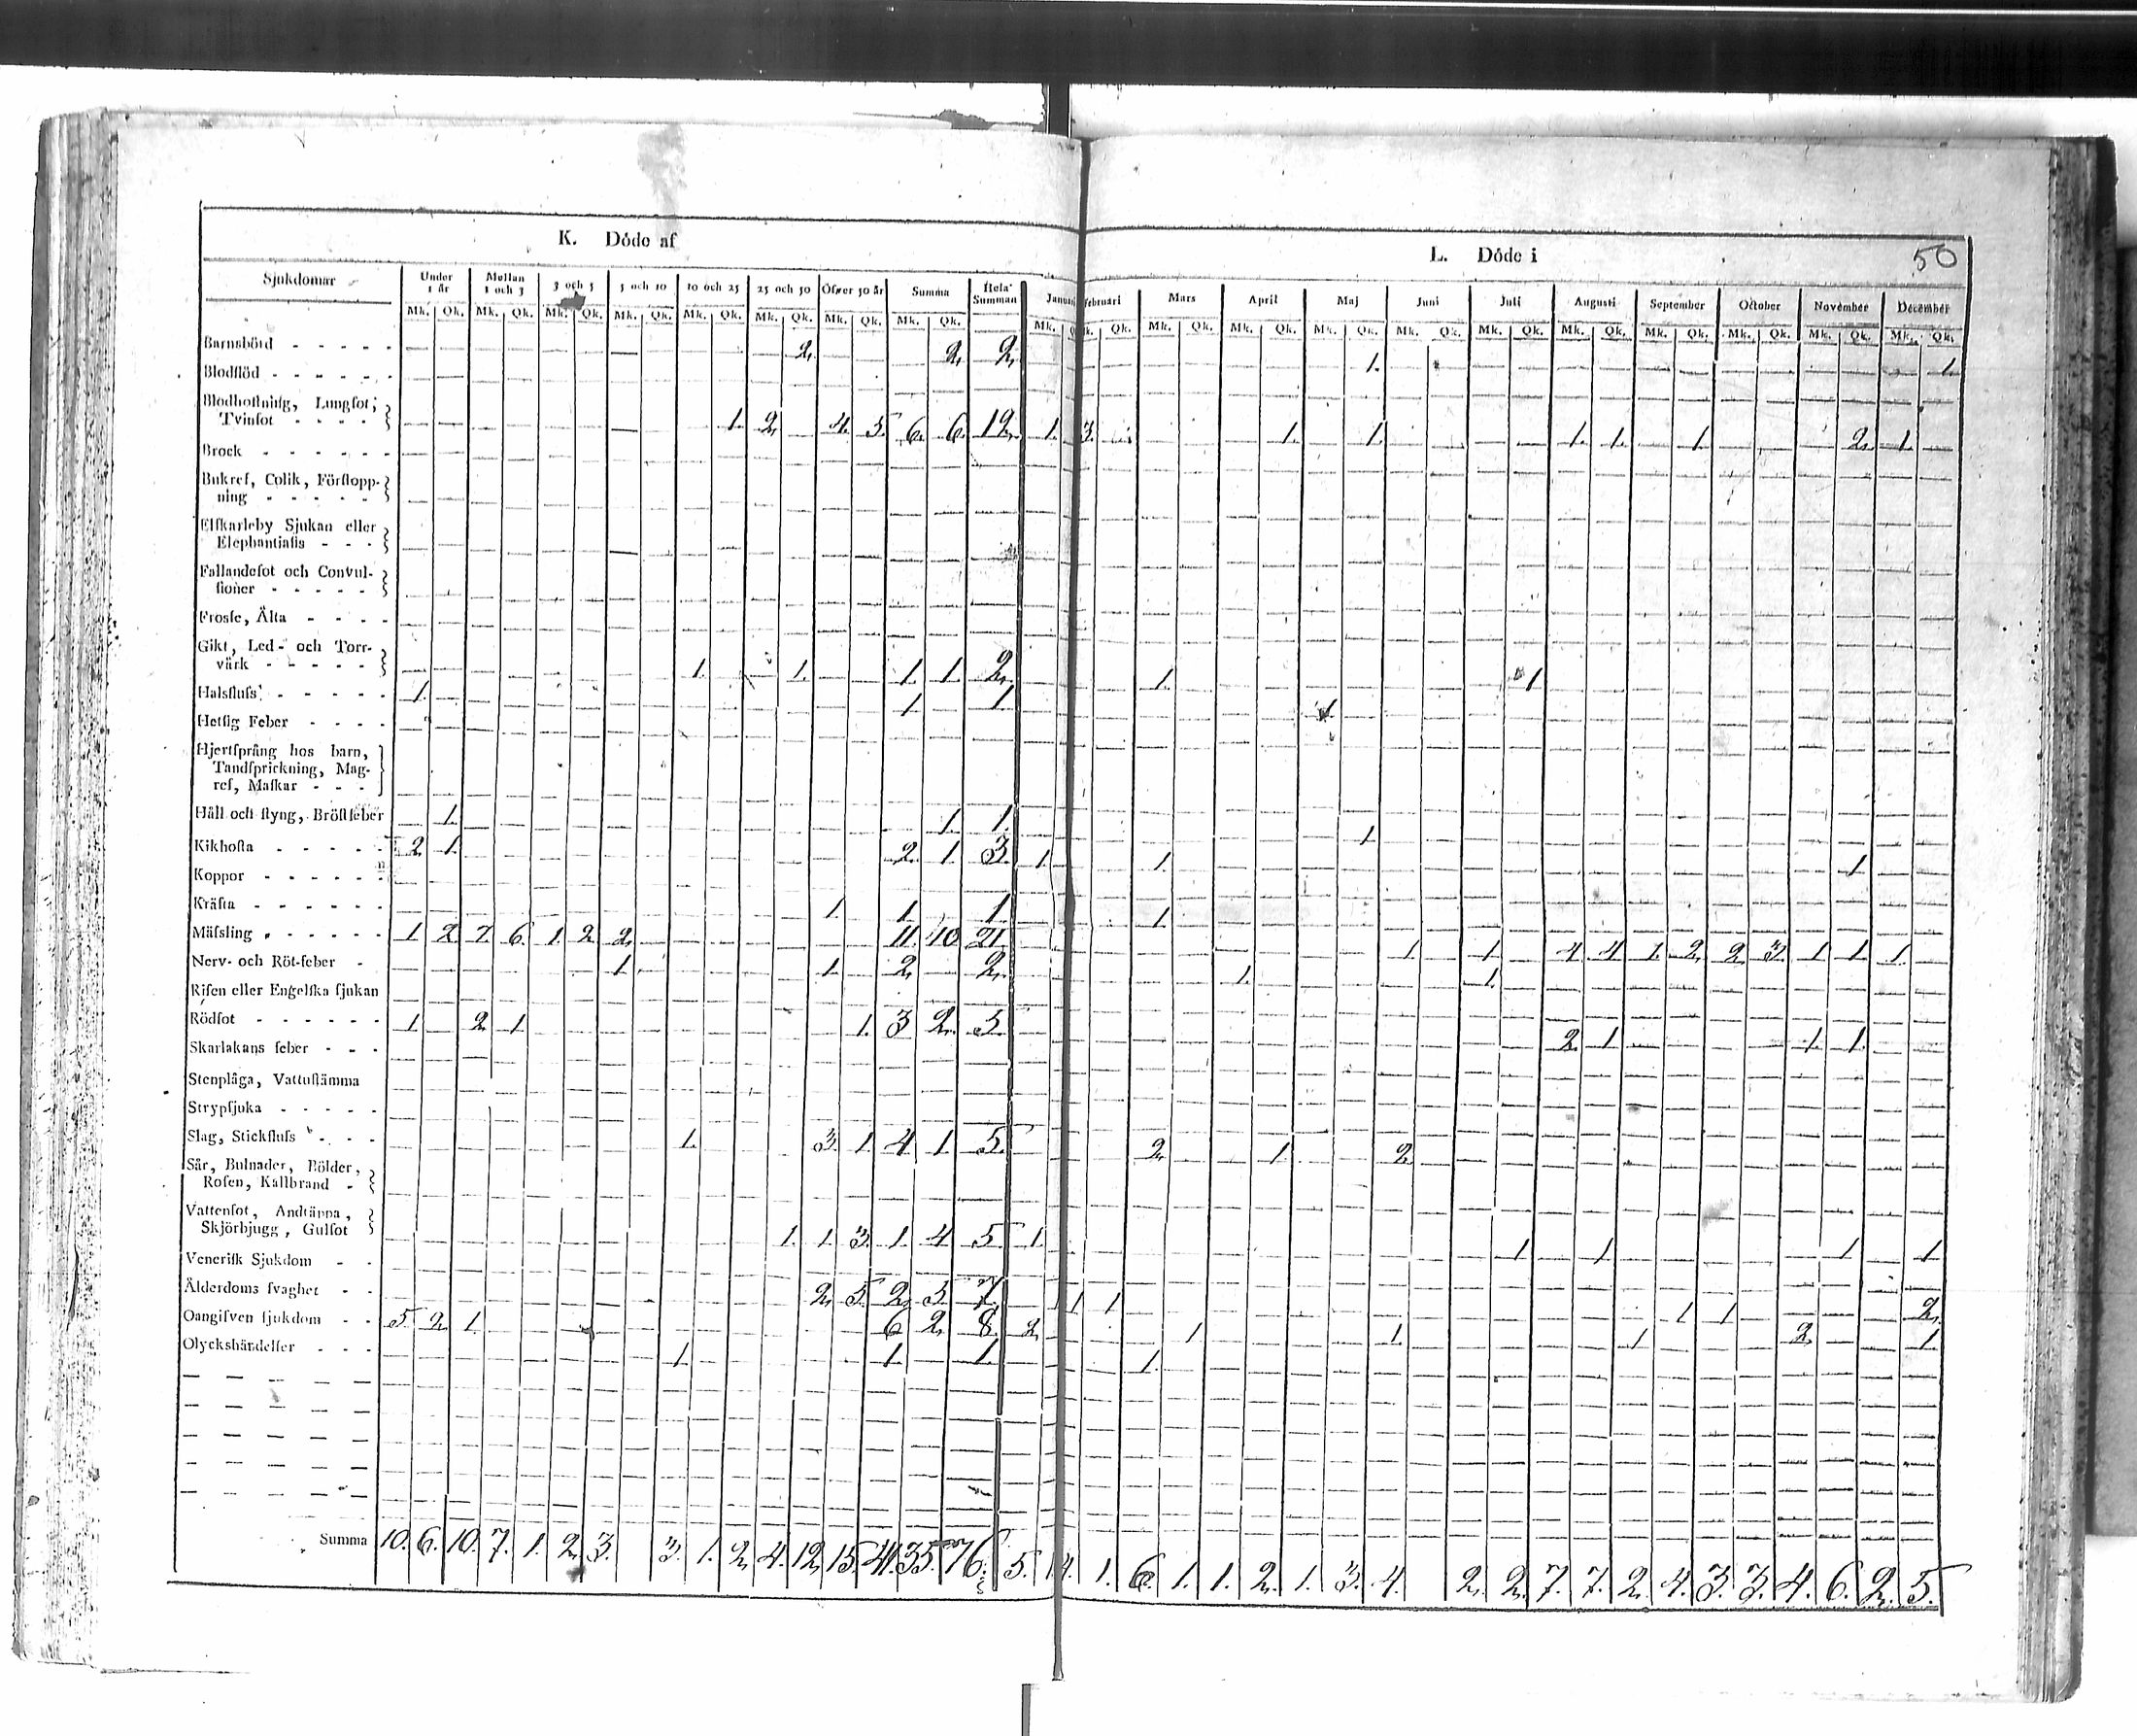 K. Döde af
L. Döde i
50
Sjukdomar Under 1 år Mellan 1 och 3 3 och 5 5 och 10 10 och 25 25 och 50 Öfver 50 år Summa Hela Summan Januari Februari Mars April Maj Juni Juli Augusti September October November December
Mk. Qk. Mk. Qk. Mk. Qk. Mk. Qk. Mk. Qk. Mk. Qk. Mk. Qk. Mk. Qk. Mk. Qk. Mk. Qk. Mk. Qk. Mk. Qk. Mk. Qk. Mk. Qk. Mk. Qk. Mk. Qk. Mk. Qk. Mk. Qk. Mk. Qk.
Barnsbörd - - - - - 2. 2. 2. 1. 1.
Blodflöd - - - - - -
Blodhostning, Lungsot,
Tvinsot - - - - 1. 2. 4. 5. 6. 6. 12. 1. 3. 1. 1. 1. 1. 1. 2. 1.
Brock - - - - - -
Bukref, Colik, Förstopp-
ning - - - - -
Elfkarleby Sjukan eller
Elephantiasis - - -
Fallandesot och Convul-
sioner - - - - -
Frosse, Älta - - - -
Gikt, Led- och Torr-
värk - - - - - 1. 1. 1. 1. 2. 1. 1
Halsfluss - - - - - 1. 1. 1 1
Hetsig Feber - - - -
Hjertsprång hos barn,
Tandsprickning, Mag-
ref, Maskar - - -
Håll och styng, Bröstfeber 1. 1. 1. 1
Kikhosta - - - - - 2. 1. 2. 1. 3. 1. 1. 1
Koppor - - - - - -
Kräfta - - - - - - 1. 1. 1. 1.
Mässling - - - - - 1 2 7. 6. 1. 2 2. 11. 10 21. 1. 1. 4 4 1. 2. 2. 3. 1 1 1.
Nerv- och Röt-feber - 1. 1. 2. 2. 1. 1.
Risen eller Engelska sjukan
Rödsot - - - - - - 1. 2. 1. 1. 3 2. 5. 2. 1 1. 1.
Skarlakans feber - - -
Stenplåga, Vattustämma
Strypsjuka - - - - -
Slag, Stickfluss - - - 1. 3. 1. 4 1. 5. 2. 1. 2.
Sår, Bulnader, Bölder,
Rosen, Kallbrand -
Vattensot, Andtäppa,
Skjörbjugg, Gulsot 1. 1. 3. 1. 4 5 1. 1 1 1 1
Venerisk Sjukdom - -
Ålderdoms svaghet - - 2. 5. 2. 5. 7. 1 1 1 1 2.
Oangifven sjukdom - - 5. 2. 1. 6 2. 8. 2. 1 1. 1 2. 1.
Olyckshändelser - - - 1. 1 1. 1.
Summa 10. 6. 10. 7. 1. 2. 3. 3. 1. 2. 4. 12. 15. 41. 35. 76. 5. 1. 4. 1. 6. 1. 1. 2. 1. 3. 4. 2. 2. 7. 7. 2. 4. 3. 3. 4. 6. 2. 5.